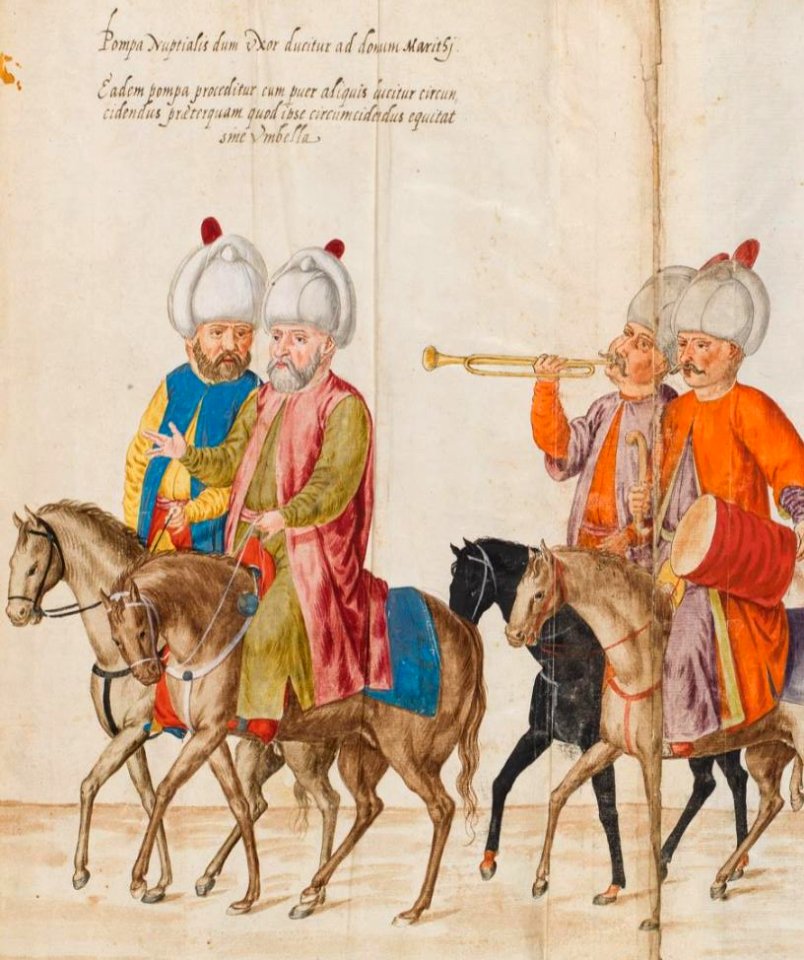 Pompa Nuptialis dum Vxor ducitur ad domum Marithj.
Eadem pompa proceditur cum puer aliquis ducitur circun,
cidendus præterquam quod ipse circumcidendus equitat
sine Vmbella